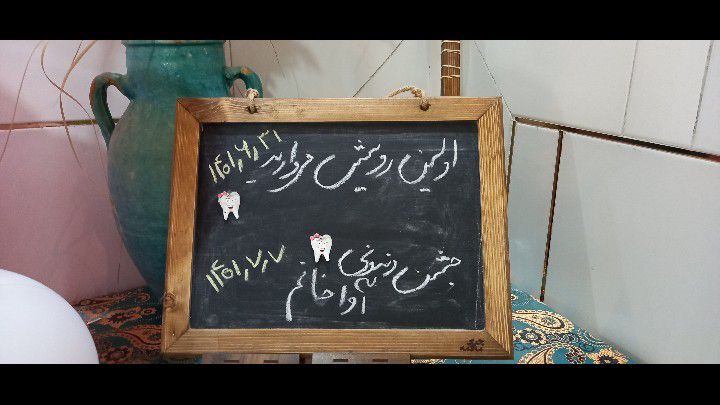 اولین رویش مروارید ۱۴۰۱٫۶٫۳۱
جشن دندونی ۱۴۰۱٫۷٫۷
آوا خانم